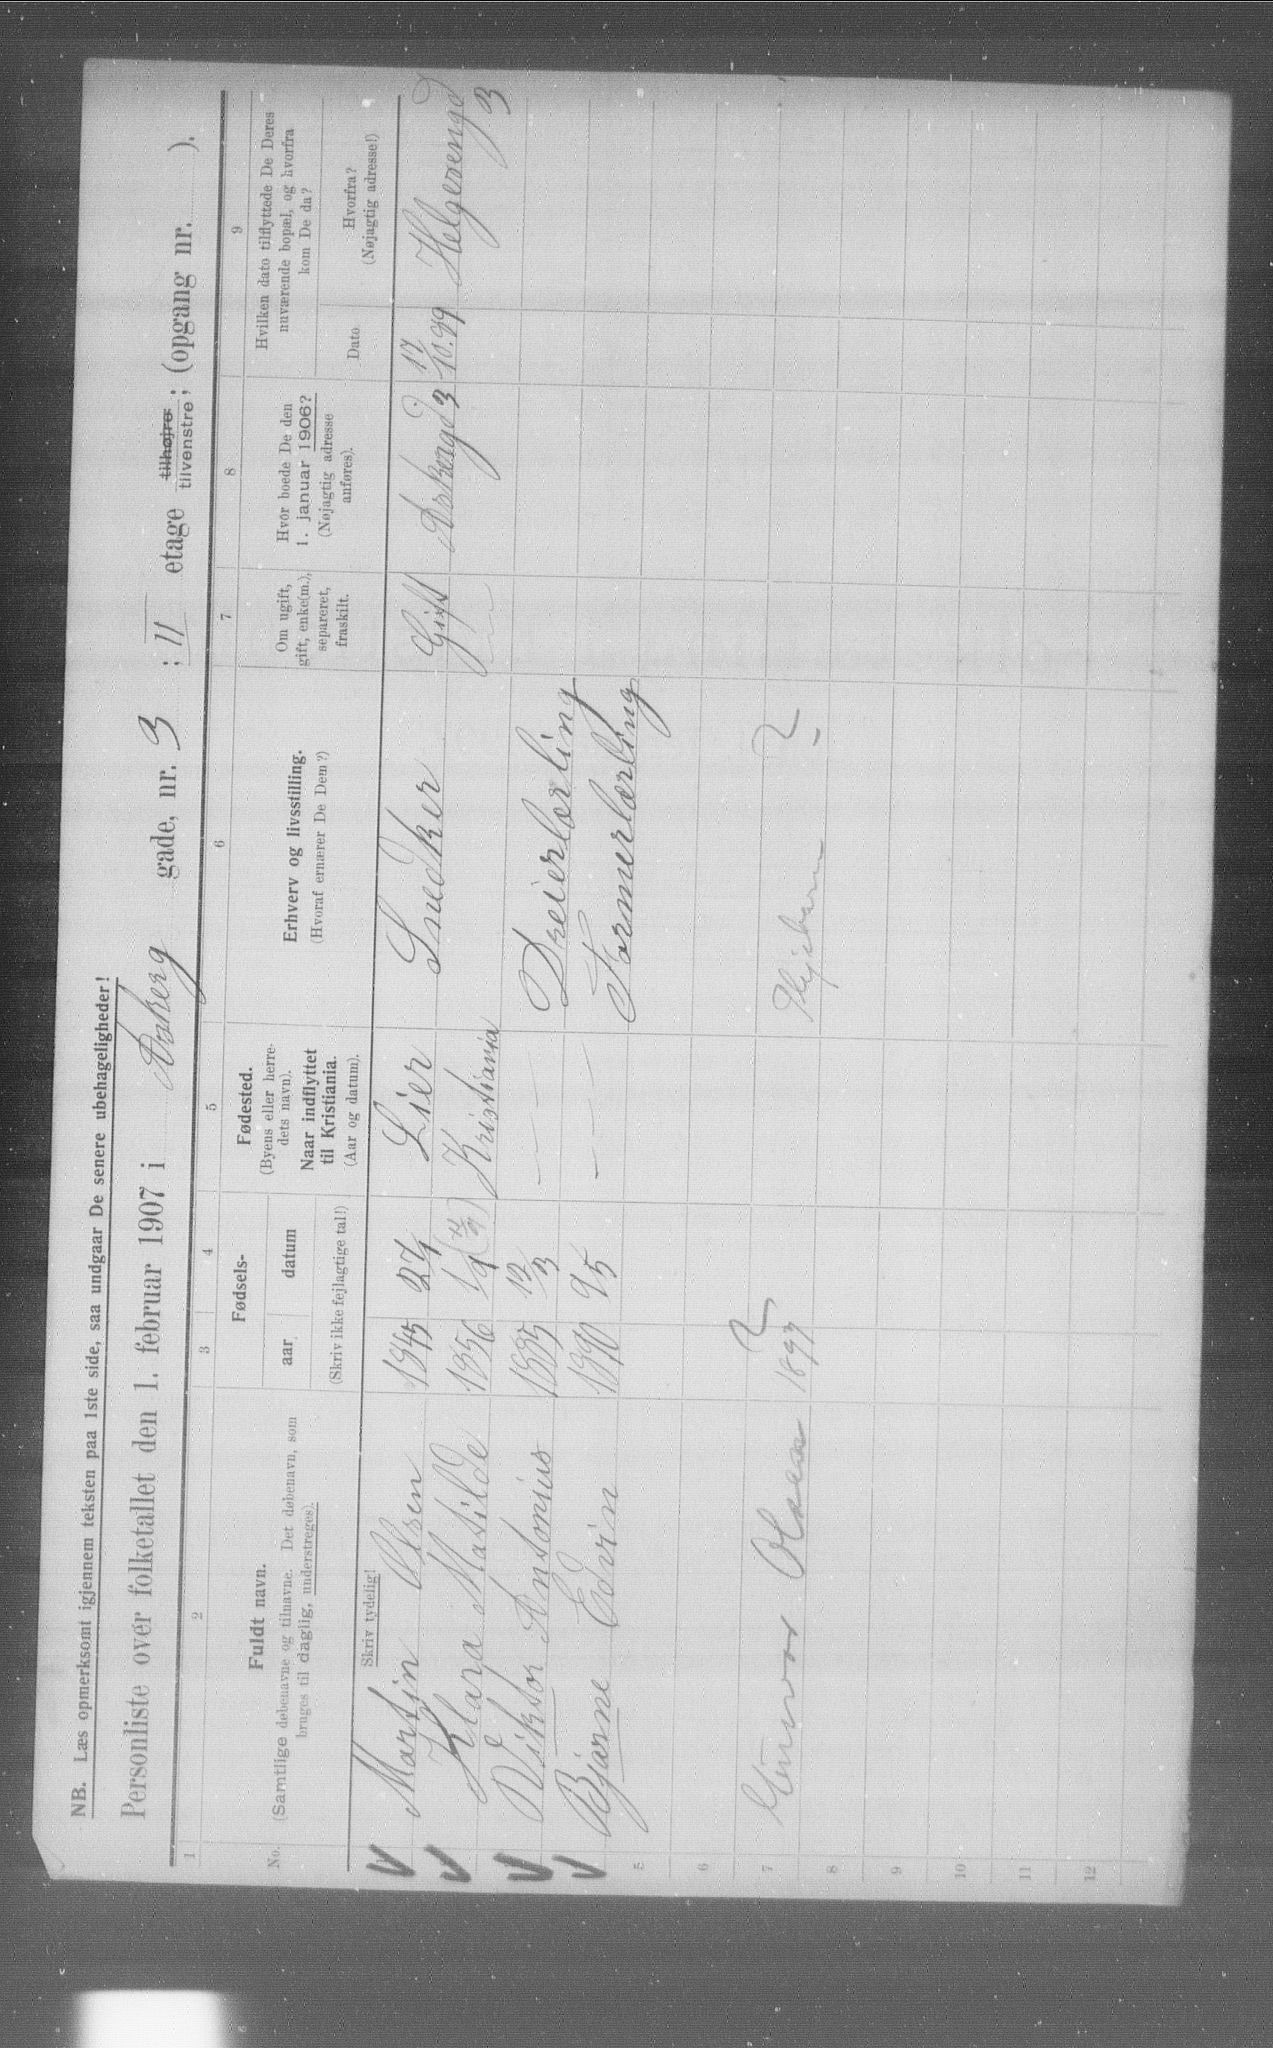 NB. Læs opmerksomt igjennem teksten paa 1ste side, saa undgaar De senere ubehageligheder!
Personliste over folketallet den 1. februar 1907 i Askerg gade, nr. 3 ; II etage tilhøjre tilvenstre; (opgang nr. ).
1 2 3 4 5 6 7 8 9
No. Fuldt navn.
(Samtlige døbenavne og tilnavne. Det døbenavn, som
bruges til daglig, understreges).
Skriv tydelig!
Fødsels-
aar datum
(Skriv ikke fejlagtige tal!)
Fødested.
(Byens eller herre-
dets navn).
Naar indflyttet
til Kristiania.
(Aar og datum).
Erhverv og livsstilling.
(Hvoraf ernærer De Dem?)
Om ugift,
gift, enke(m.),
separeret,
fraskilt.
Hvor boede De den
1. januar 1906?
(Nøjagtig adresse
anføres).
Hvilken dato tilflyttede De Deres
nuværende bopæl, og hvorfra
kom De da?
Dato
Hvorfra?
(Nøjagtig adresse!)
Martin Olsen 1845 Lier Snedker Gift Askergd 3 17/10.99 Helgesengd 3
Klara Matilde 1856 Kristiania
Viktor Antonius 1885 12/3 Dreierlærling
Bjarne Edvin 1890 9/5 Formerlærling
5
6
7 Olsen 1897
8
9
10
11
12